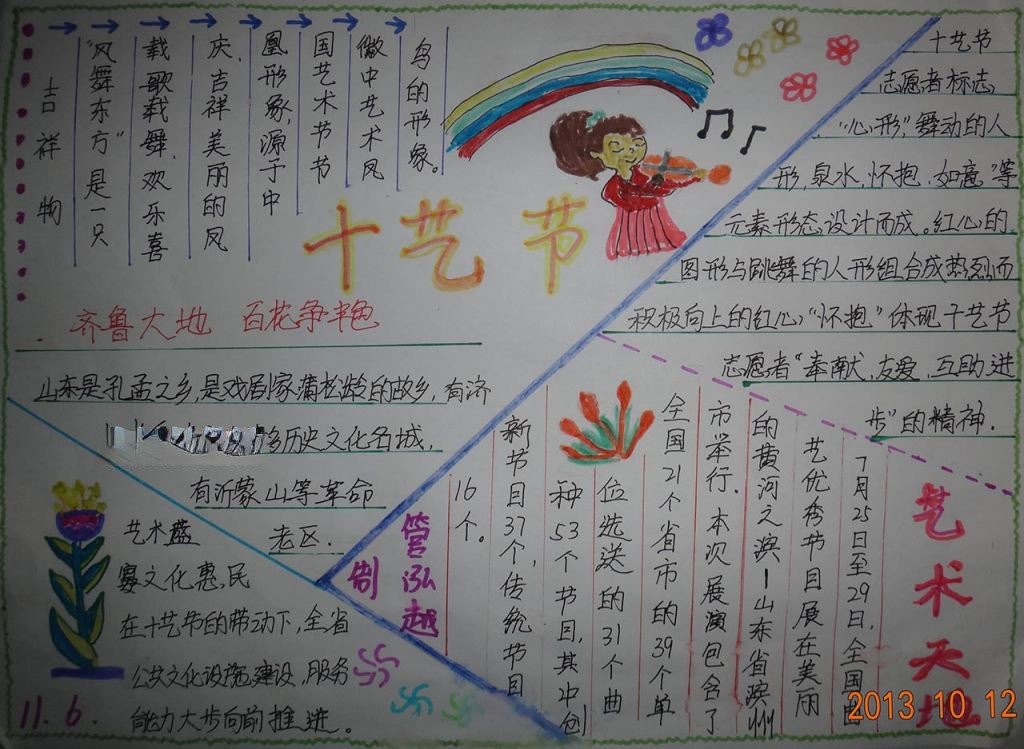 吉祥物
“风舞东方”是一只
载歌载舞、欢乐喜
庆、吉祥美丽的凤
凰形象,源于中
国艺术节节
徽中艺术凤
鸟的形象。
十艺节
齐鲁大地 百花争艳
山东是孔孟之乡,是戏剧家蒲松龄的故乡,有济
多历史文化名城,
有沂蒙山等革命
老区.
艺术盛
宴文化惠民
在十艺节的带动下,全省
公共文化设施建设,服务
能力大步向前推进。
11.6.
十艺节
志愿者标志
“心形,”舞动的人
形,泉水,怀抱,如意”等
元素形态设计而成。红心的
图形与跳舞的人形组合成热烈而
积极向上的红心“怀抱”体现十艺节
志愿者“奉献,友爱,互助,进
步”的精神.
艺术天地
7月25日至29日,全国曲
艺优秀节目展在美丽
的黄河之滨—山东省滨州
市举行.本次展演包含了
全国21个省市的39个单
位选送的31个曲
种53个节目,其中创
新节目37个,传统节目
16个。
管泓越
制
2013 10 12